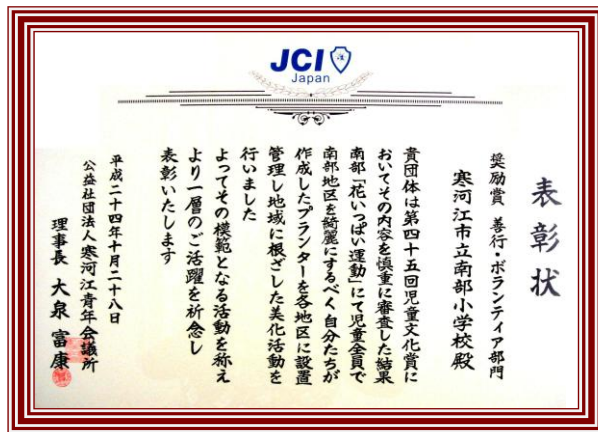 JCI
Japan
表彰状
奨励賞 善行・ボランティア部門
寒河江市立南部小学校殿
貴団体は第四十五回児童文化賞に
おいてその内容を慎重に審査した結果
南部「花いっぱい運動」にて児童全員で
南部地区を綺麗にするべく自分たちが
作成したプランターを各地区に設置
管理し地域に根ざした美化活動を
行いました
よってその模範となる活動を称え
より一層のご活躍を祈念し
表彰いたします
平成二十四年十月二十八日
公益社団法人寒河江青年会議所
理事長 大泉富康